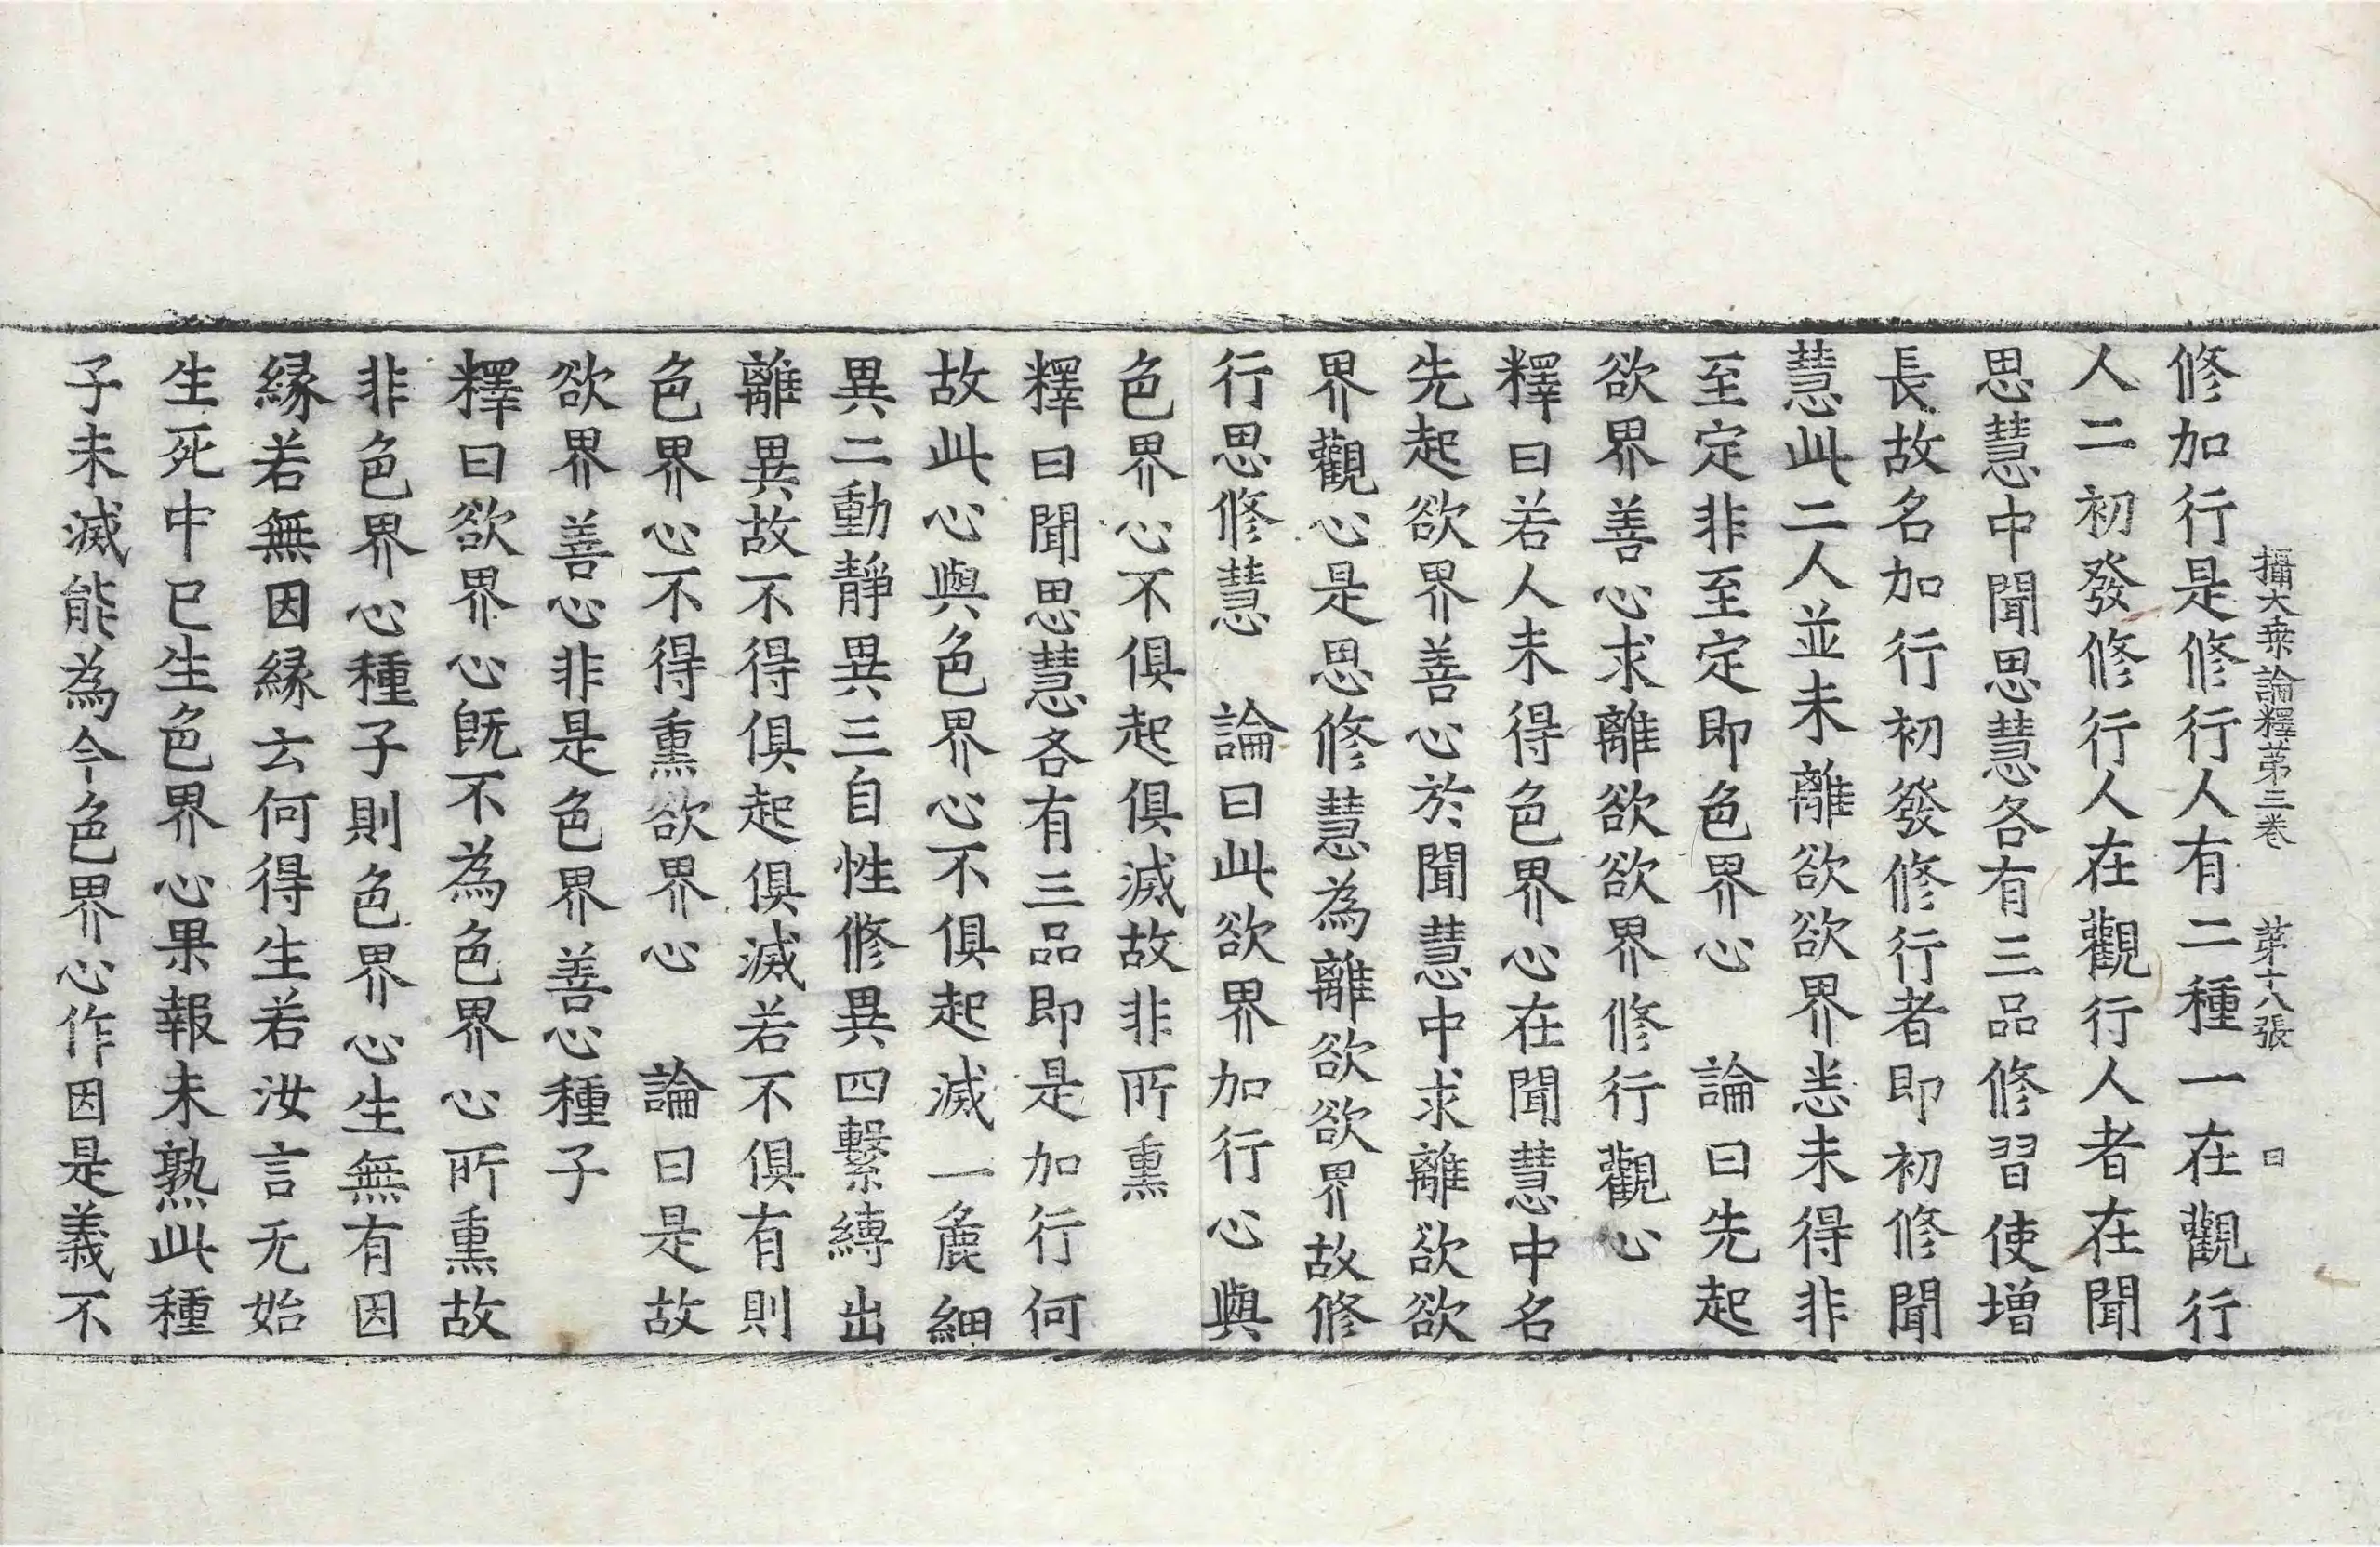 攝大乗論釋第三卷　第十八張　日
修加行是修行人有二種一在觀行
人二初發修行人在觀行人者在聞
思慧中聞思慧各有三品修習使增
長故名加行初發修行者即初修聞
慧此二人並未離欲欲界恙未得非
至定非至定即色界心　論曰先起
欲界善心求離欲欲界修行觀心
釋曰若人未得色界心在聞慧中名
先起欲界善心於聞慧中求離欲欲
界觀心是思修慧為離欲欲界故修
行思修慧　論曰此欲界加行心與
色界心不俱起俱滅故非所熏
釋曰聞思慧各有三品即是加行何
故此心與色界心不俱起滅一麁細
異二動靜異三自性修異四繫縛出
離異故不得俱起俱滅若不俱有則
色界心不得熏欲界心　論曰是故
欲界善心非是色界善心種子
釋曰欲界心旣不為色界心所熏故
非色界心種子則色界心生無有因
緣若無因緣云何得生若汝言无始
生死中已生色界心果報未熟此種
子未滅能為今色界心作因是義不